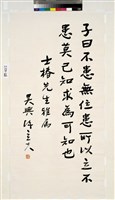 子曰不患無位患所以立不
患莫己知求為可知也
士椿先生雅屬
吳興陳立夫